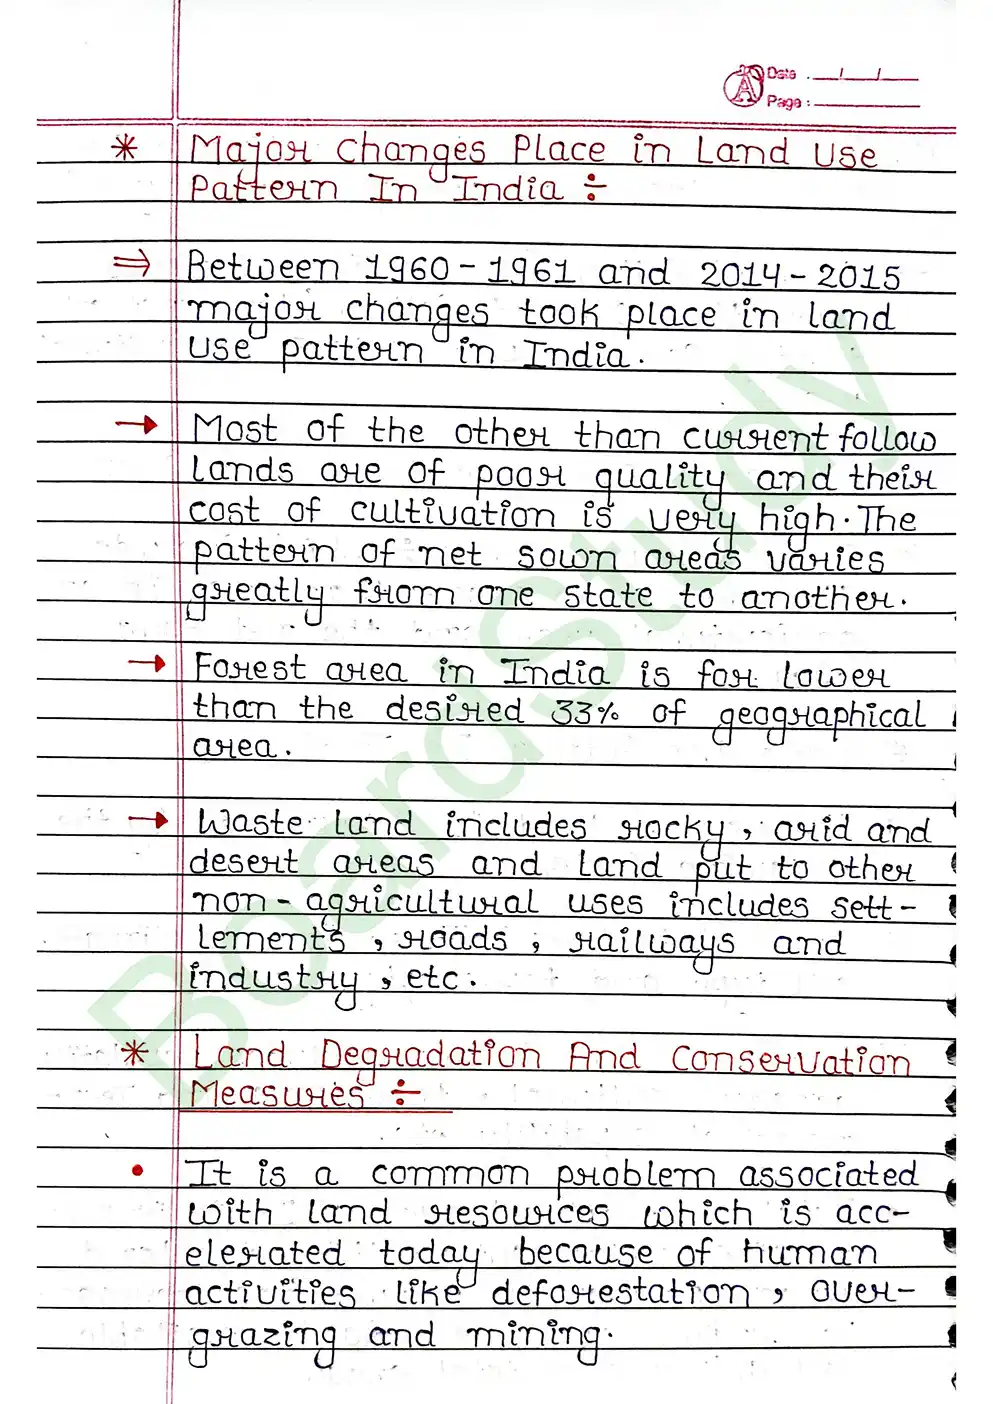 Date : __/__/__
Page : ______
* Major Changes Place in Land Use
Pattern In India ÷
⇒ Between 1960 - 1961 and 2014 - 2015
major changes took place in land
use pattern in India.
→ Most of the other than current follow
lands are of poor quality and their
cost of cultivation is very high. The
pattern of net sown areas varies
greatly from one state to another.
→ Forest area in India is far lower
than the desired 33% of geographical
area.
→ Waste land includes rocky, arid and
desert areas and land put to other
non-agricultural uses includes sett-
lements, roads, railways and
industry, etc.
* Land Degradation And Conservation
Measures ÷
• It is a common problem associated
with land resources which is acc-
elerated today because of human
activities like deforestation, over-
grazing and mining.
BoardStudy